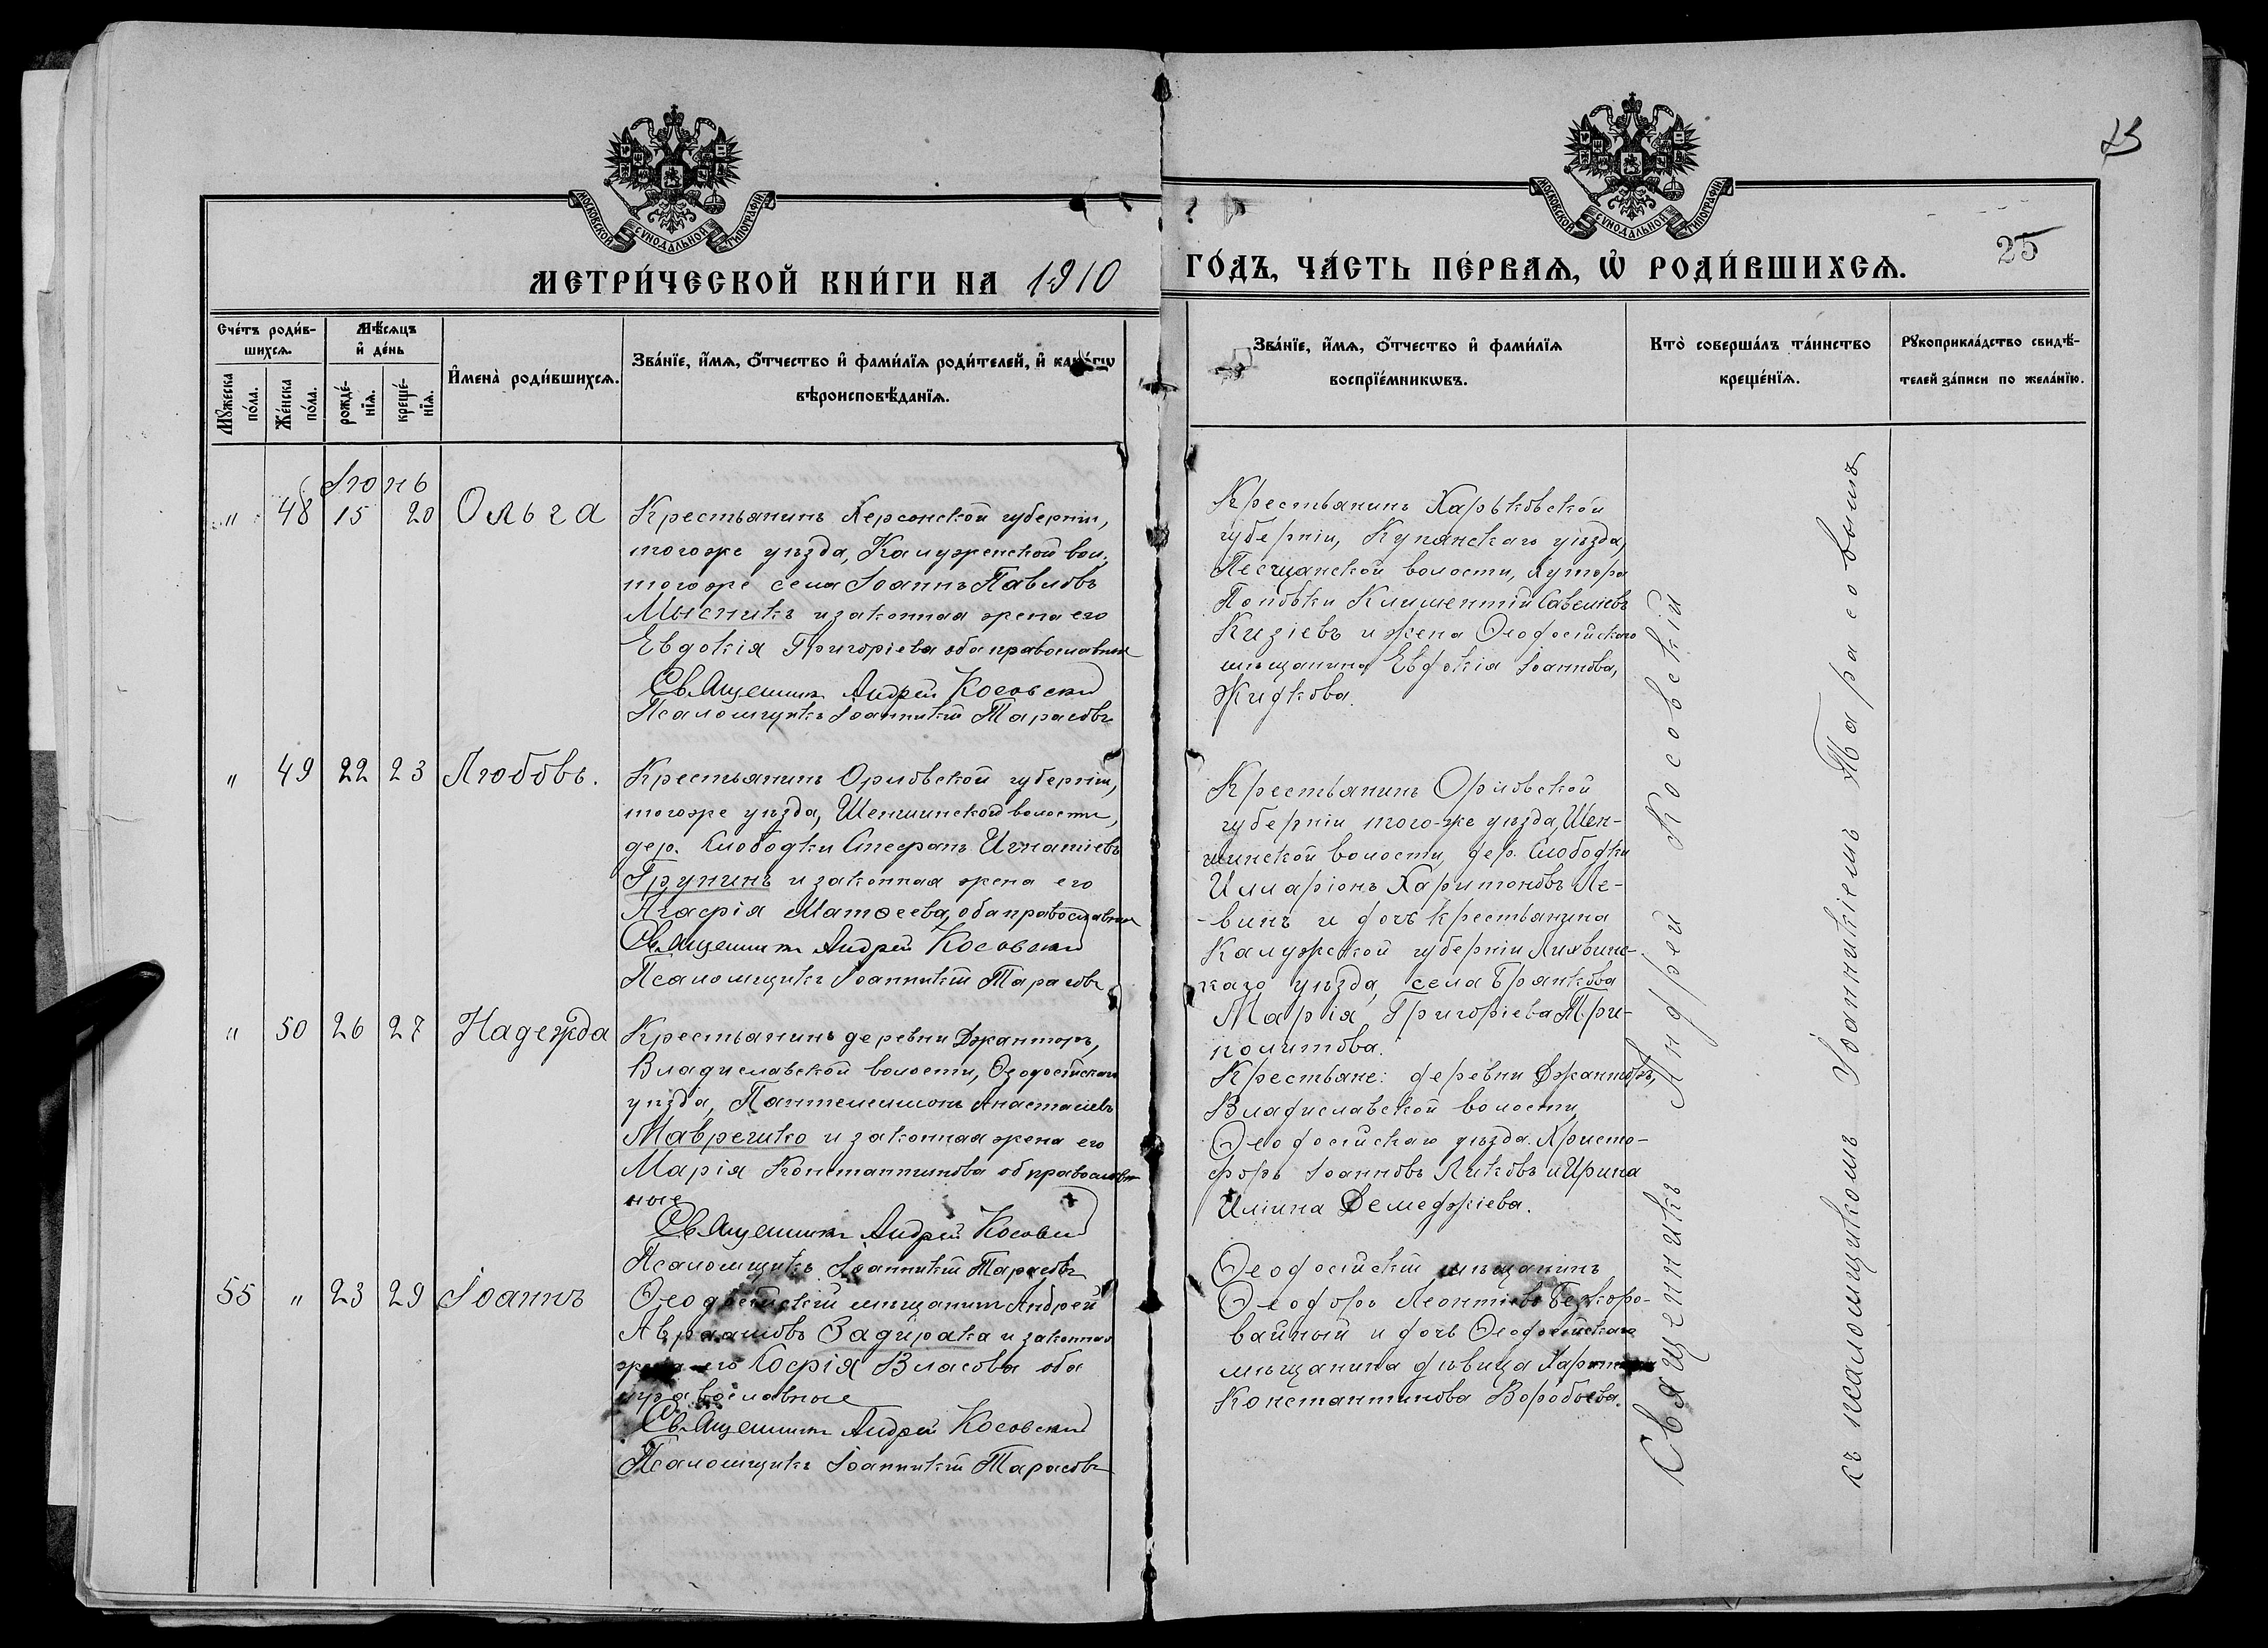 23
МОСКОВСКОЙ СѴНОДАЛЬНОЙ ТИПОГРАФІИ
МОСКОВСКОЙ СѴНОДАЛЬНОЙ ТИПОГРАФІИ
25
МЕТРИ́ЧЕСКОЙ КНИ́ГИ НА 1910
ГО́ДЪ, ЧА́СТЬ ПЕ́РВАѦ, Ѽ РОДИ́ВШИХСѦ.
Сче́тъ роди́в-
шихсѧ.
Мꙋ́жеска по́ла.
Же́нска по́ла.
Мѣ́сѧцъ
и҆ де́нь
рожде́-
нїѧ.
креще́-
нїѧ.
И҆мена̀ роди́вшихсѧ.
Зва́нїе, и҆́мѧ, ѻ҆́тчество и҆ фами́лїѧ роди́телей, и҆ како́гѡ
вѣроисповѣ́данїѧ.
Зва́нїе, и҆́мѧ, ѻ҆́тчество и҆ фами́лїѧ
воспрїе́мникѡвъ.
Кто̀ соверша́лъ та́инство
креще́нїѧ.
Рꙋкоприкла́дство свидѣ́-
телей за́писи по жела́нїю.
Іюнь
" 48 15 20 Ольга
Крестьянинъ Херсонской губерніи,
тогоже уѣзда, Калуженской вол.,
тогоже села Іоаннъ Павловъ
Мысникъ и законная жена его
Евдокія Григоріева оба православные
Священникъ Андрей Косовскій
Псаломщикъ Іоанникій Тарасовъ
Крестьянинъ Харьковской
губерніи, Купянскаго уѣзда,
Песчанской волости, хутора
Поповки Климентій Савеліевъ
Кизіевъ и жена Ѳеодосійскаго
мѣщанина Евдокія Іоаннова,
Жидкова.
" 49 22 23 Любовь.
Крестьянинъ Орловской губерніи,
тогоже уѣзда, Шеншинской волости,
дер. Слободки Стефанъ Игнатіевъ
Грунинъ и законная жена его
Агафія Матѳеева, оба православные
Священникъ Андрей Косовскій
Псаломщикъ Іоанникій Тарасовъ
Крестьянинъ Орловской
губерніи того-же уѣзда, Шен-
шинской волости, дер. Слободки
Илларіонъ Харитоновъ Ле-
-винъ и дочь крестьянина
Калужской губерніи Лихвинс-
каго уѣзда, села Бранкова
Марія Григоріева Три-
политова.
" 50 26 27 Надежда
Крестьянинъ деревни Джанторъ,
Владиславской волости, Ѳеодосійскаго
уѣзда, Пантелеимонъ Анастасіевъ
Мавречико и законная жена его
Марія Константинова об православ-
ные
Священникъ Андрей Косовскій
Псаломщикъ Іоанникій Тарасовъ
Крестьяне: деревни Джанторъ,
Владиславской волости,
Ѳеодосійскаго уѣзда. Христо-
форъ Іоанновъ Ликовъ и Ирина
Иліина Демеджіева.
55 " 23 29 Іоаннъ
Ѳеодосійскій мѣщанинъ Андрей
Авраамовъ Задирака и законная
жена его Софія Власова оба
православные
Священникъ Андрей Косовскій
Псаломщикъ Іоанникій Тарасовъ
Ѳеодосійскій мѣщанинъ
Ѳеодоръ Леонтіевъ Безкоро-
вайный и дочь Ѳеодосійскаго
мѣщанина дѣвица
Константинова Воробьева.
Священникъ Андрей Косовскій
съ псаломщикомъ Іоанникіемъ Тарасовымъ